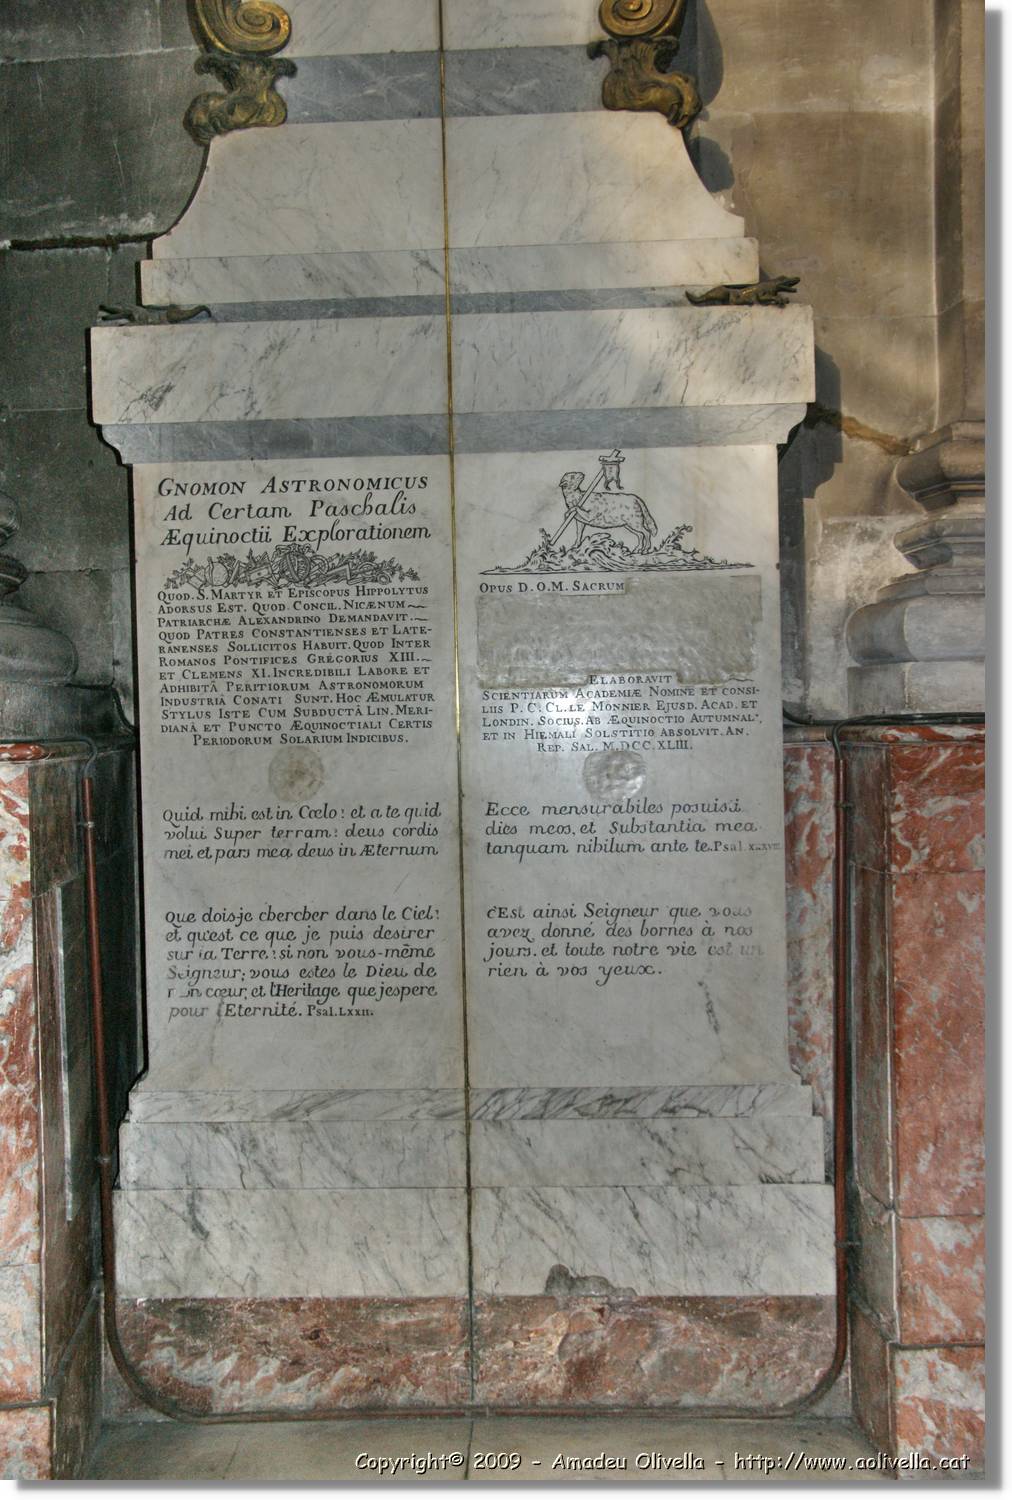 GNOMON ASTRONOMICUS
Ad Certam Paschalis
Æquinoctii Explorationem
QUOD. S. MARTYR ET EPISCOPUS HIPPOLYTUS
ADORSUS EST. QUOD CONCIL. NICÆNUM
PATRIARCHÆ ALEXANDRINO DEMANDAVIT.
QUOD PATRES CONSTANTIENSES ET LATE-
RANENSES SOLLICITOS HABUIT. QUOD INTER
ROMANOS PONTIFICES GREGORIUS XIII.
ET CLEMENS XI. INCREDIBILI LABORE ET
ADHIBITÂ PERITIORUM ASTRONOMORUM
INDUSTRIA CONATI SUNT. HOC ÆMULATUR
STYLUS ISTE CUM SUBDUCTÂ LIN. MERI-
DIANÂ ET PUNCTO ÆQUINOCTIALI CERTIS
PERIODORUM SOLARIUM INDICIBUS.
Quid mihi est in Cœlo? et a te quid
volui Super terram? deus cordis
mei et pars mea deus in Æternum
Que dois-je chercher dans le Ciel?
et qu'est ce que je puis desirer
sur la Terre, si non vous-même
Seigneur; vous estes le Dieu de
cœur, et l'Heritage que j'espere
pour l'Eternité. Psal. LXXII.
OPUS D.O.M. SACRUM
ELABORAVIT
SCIENTIARUM ACADEMIÆ NOMINE ET CONSI-
LIIS P. C. CL. LE MONNIER EJUSD. ACAD. ET
LONDIN. SOCIUS. AB ÆQUINOCTIO AUTUMNAL
ET IN HIEMALI SOLSTITIO ABSOLVIT. AN.
REP. SAL. M.DCC.XLIII.
Ecce mensurabiles posuisti
dies meos, et Substantia mea
tanquam nihilum ante te. Psal.
c'Est ainsi Seigneur que vous
avez donné des bornes à nos
jours. et toute notre vie est un
rien à vos yeux.
Copyright© 2009 - Amadeu Olivella - http://www.aolivella.cat